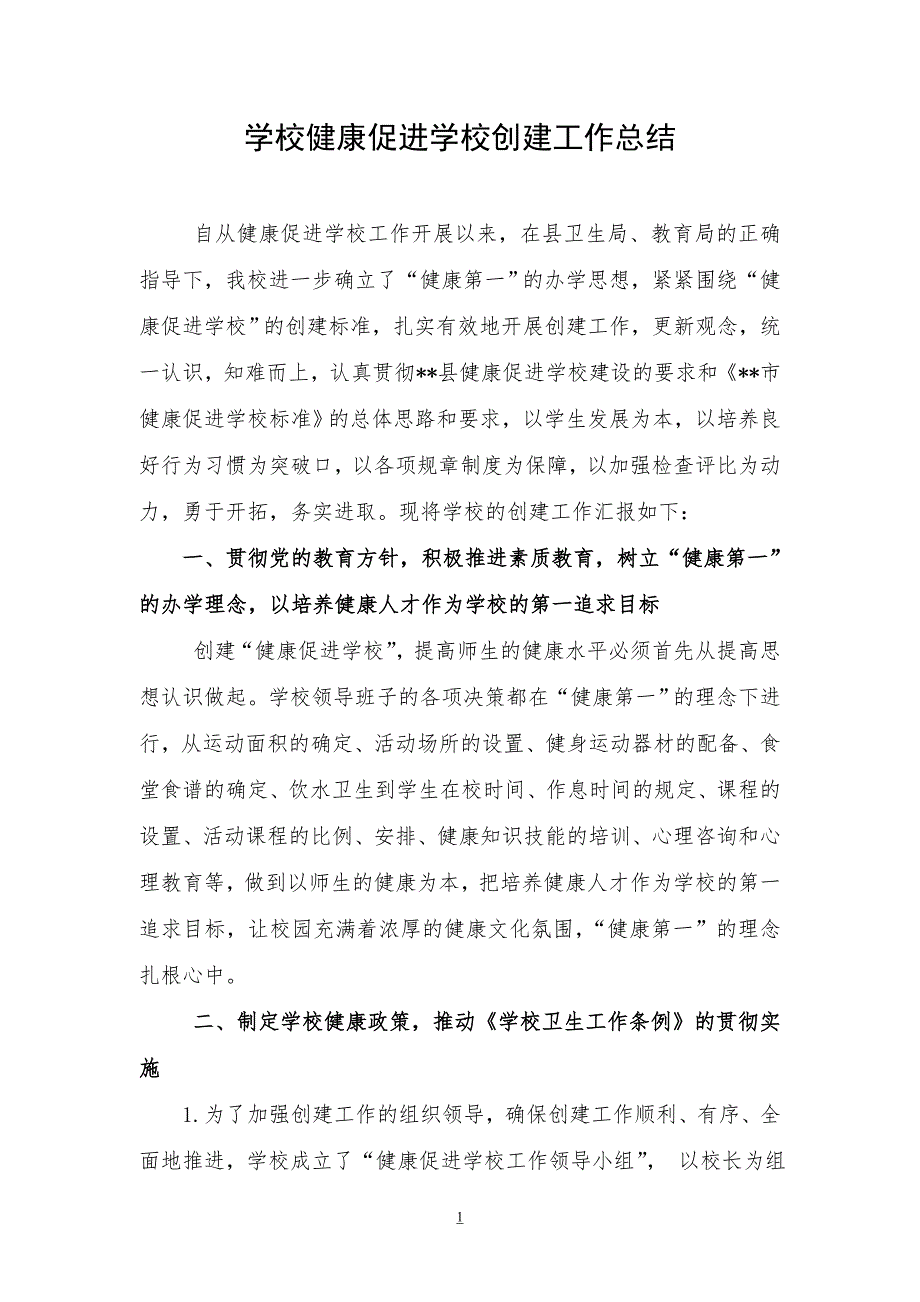 学校健康促进学校创建工作总结
自从健康促进学校工作开展以来，在县卫生局、教育局的正确
指导下，我校进一步确立了“健康第一”的办学思想，紧紧围绕“健
康促进学校”的创建标准，扎实有效地开展创建工作，更新观念，统
一认识，知难而上，认真贯彻**县健康促进学校建设的要求和《**市
健康促进学校标准》的总体思路和要求，以学生发展为本，以培养良
好行为习惯为突破口，以各项规章制度为保障，以加强检查评比为动
力，勇于开拓，务实进取。现将学校的创建工作汇报如下：
一、贯彻党的教育方针，积极推进素质教育，树立“健康第一”
的办学理念，以培养健康人才作为学校的第一追求目标
创建“健康促进学校”，提高师生的健康水平必须首先从提高思
想认识做起。学校领导班子的各项决策都在“健康第一”的理念下进
行，从运动面积的确定、活动场所的设置、健身运动器材的配备、食
堂食谱的确定、饮水卫生到学生在校时间、作息时间的规定、课程的
设置、活动课程的比例、安排、健康知识技能的培训、心理咨询和心
理教育等，做到以师生的健康为本，把培养健康人才作为学校的第一
追求目标，让校园充满着浓厚的健康文化氛围，“健康第一”的理念
扎根心中。
二、制定学校健康政策，推动《学校卫生工作条例》的贯彻实
施
1.为了加强创建工作的组织领导，确保创建工作顺利、有序、全
面地推进，学校成立了“健康促进学校工作领导小组”， 以校长为组
1